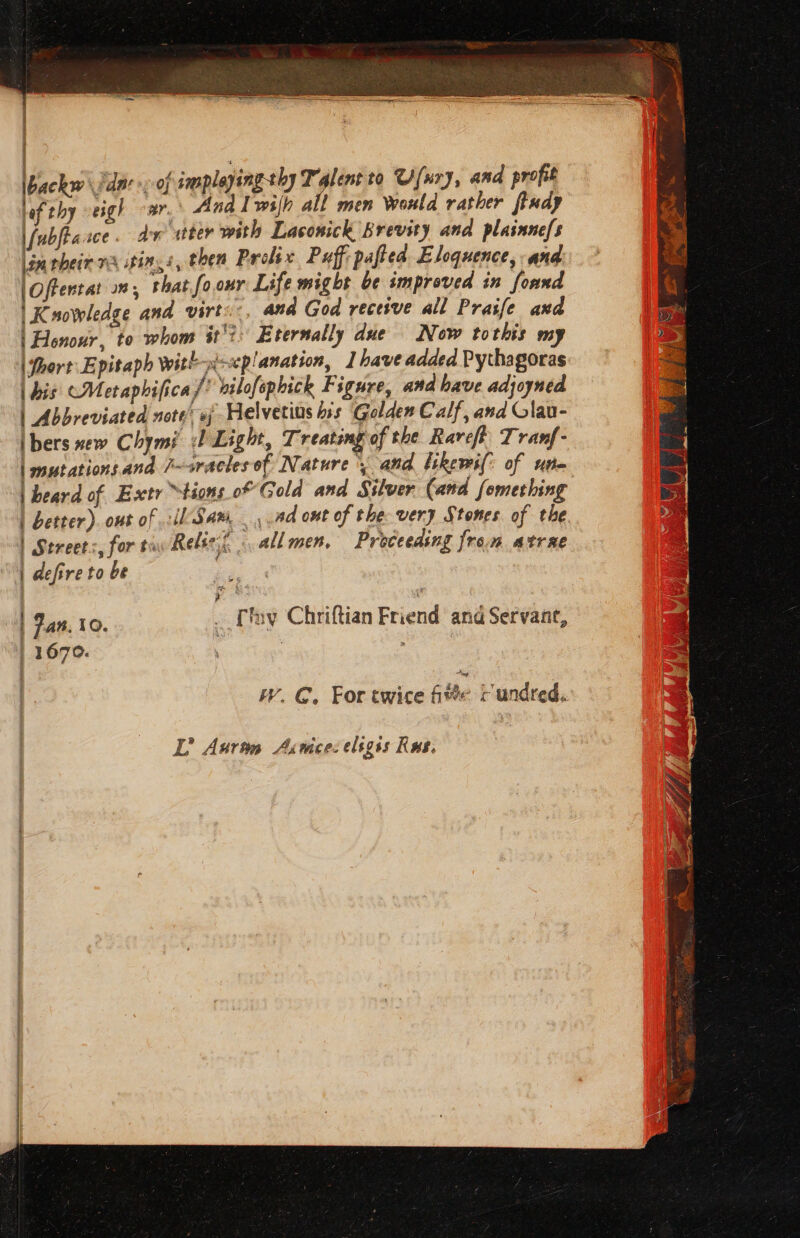 of imploying thy Talent to Uſury, and profit
of thy And I wiſh all men would rather ſtudy
ſubſtance. utter with Laconick Brevity and plainneſs
in their then Prolix Puff-paſted Eloquence, and
that ſo our Life might be improved in ſound
Knowledge and and God receive all Praiſe and
Honour, to whom Eternally due Now to this my
ſhort Epitaph I have added Pythagoras
his Metaphiſica Figure, and have adjoyned
Abbreviated Helvetius his Golden Calf, and Glau-
bers new Light, Treating of the Rareſt Tranſ-
mutations and of Nature and likewiſ of un-
heard of of Gold and Silver (and ſomething
better) out of out of the very Stones of the
for all men, Proceeding from a true
deſire to be
Jan. 10. Chriſtian Friend and Servant,
1670.
W. C. For twice
L' Aurum eligis Rus.